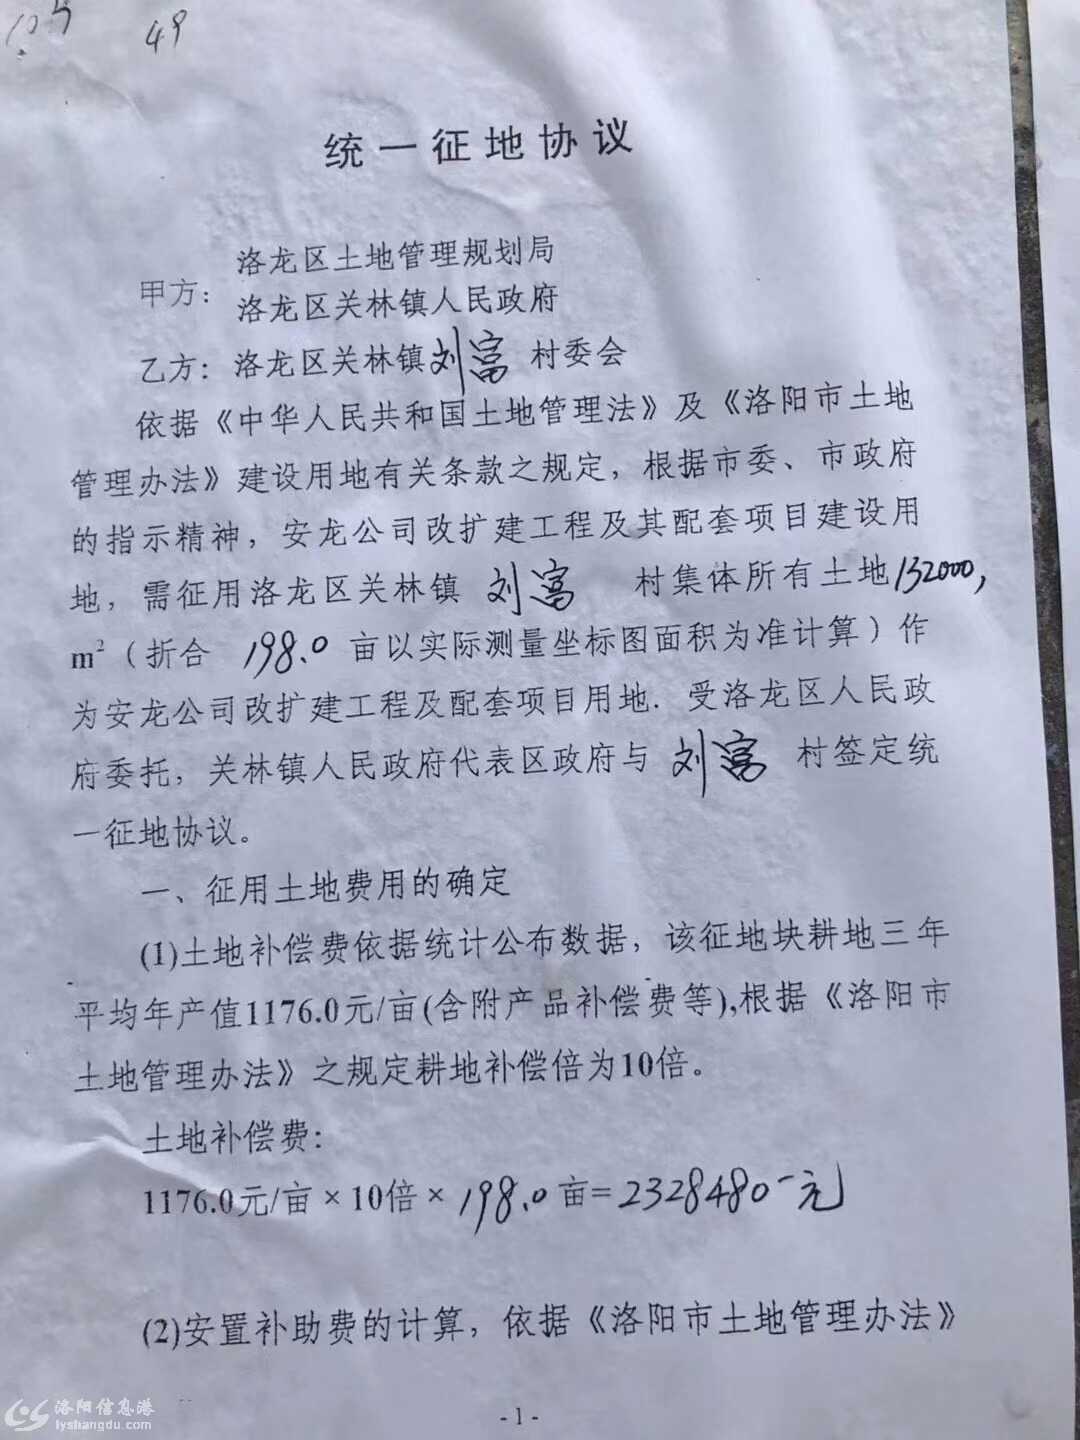 49
统一征地协议
洛龙区土地管理规划局
甲方：
洛龙区关林镇人民政府
乙方：洛龙区关林镇刘富村委会
依据《中华人民共和国土地管理法》及《洛阳市土地
管理办法》建设用地有关条款之规定，根据市委、市政府
的指示精神，安龙公司改扩建工程及其配套项目建设用
地，需征用洛龙区关林镇 刘富 村集体所有土地132000,
m²（折合 198.0 亩以实际测量坐标图面积为准计算）作
为安龙公司改扩建工程及配套项目用地．受洛龙区人民政
府委托，关林镇人民政府代表区政府与 刘富 村签定统
一征地协议。
一、征用土地费用的确定
(1)土地补偿费依据统计公布数据，该征地块耕地三年
平均年产值1176.0元/亩(含附产品补偿费等),根据《洛阳市
土地管理办法》之规定耕地补偿倍为10倍。
土地补偿费：
1176.0元/亩×10倍×198.0亩=2328480-元
(2)安置补助费的计算，依据《洛阳市土地管理办法》
- 1 -
洛阳信息港
lyshangdu.com